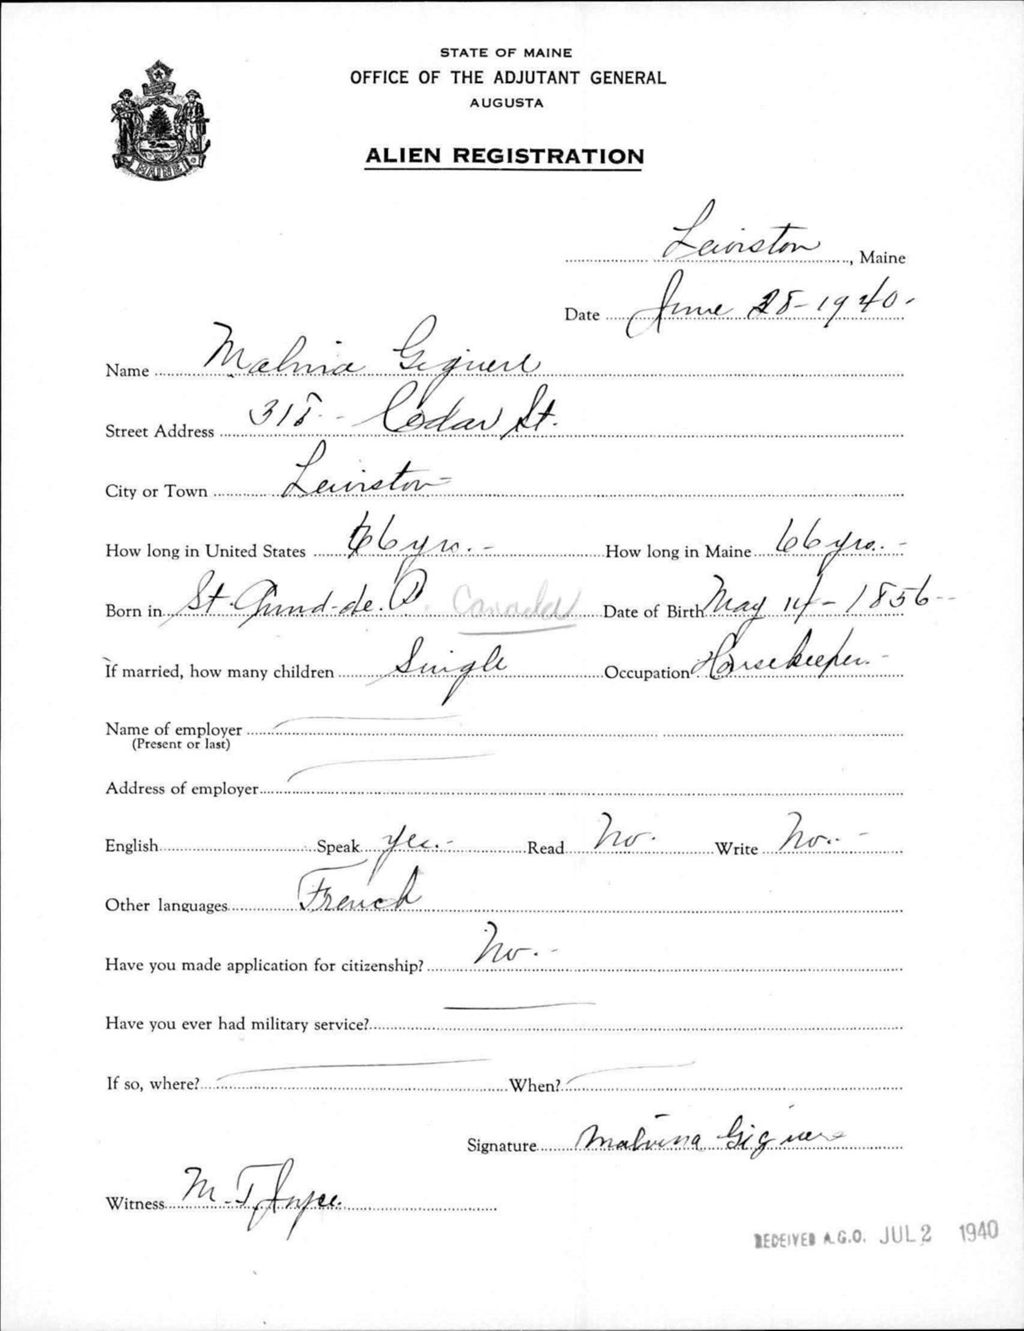 STATE OF MAINE
OFFICE OF THE ADJUTANT GENERAL
AUGUSTA
MAINE
ALIEN REGISTRATION
Lewiston, Maine
Date June 28-1940.
Name Malvina Giguere
Street Address 318 - Cedar St.
City or Town Lewiston
How long in United States 66 yrs. - How long in Maine 66 yrs. -
Born in St. de. P. Canada Date of Birth May 14 - 1856
If married, how many children Single Occupation Housekeeper. -
Name of employer
(Present or last)
Address of employer
English Speak Yes. - Read No. Write No. -
Other languages French
Have you made application for citizenship? No. -
Have you ever had military service?
If so, where? When?
Signature Malvina Giguere
Witness M. T. Joyce.
RECEIVED A.G.O. JUL 2 1940